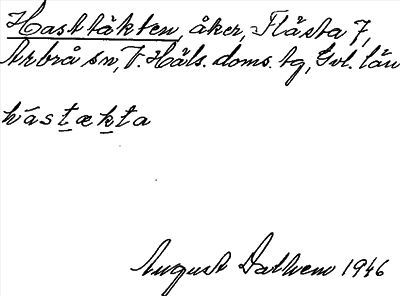 Hasttäkten, åker, Flästa 7,
Arbrå sn, V. Häls. doms. tg, Gvl. län
hástækta
August Dahlvem 1946